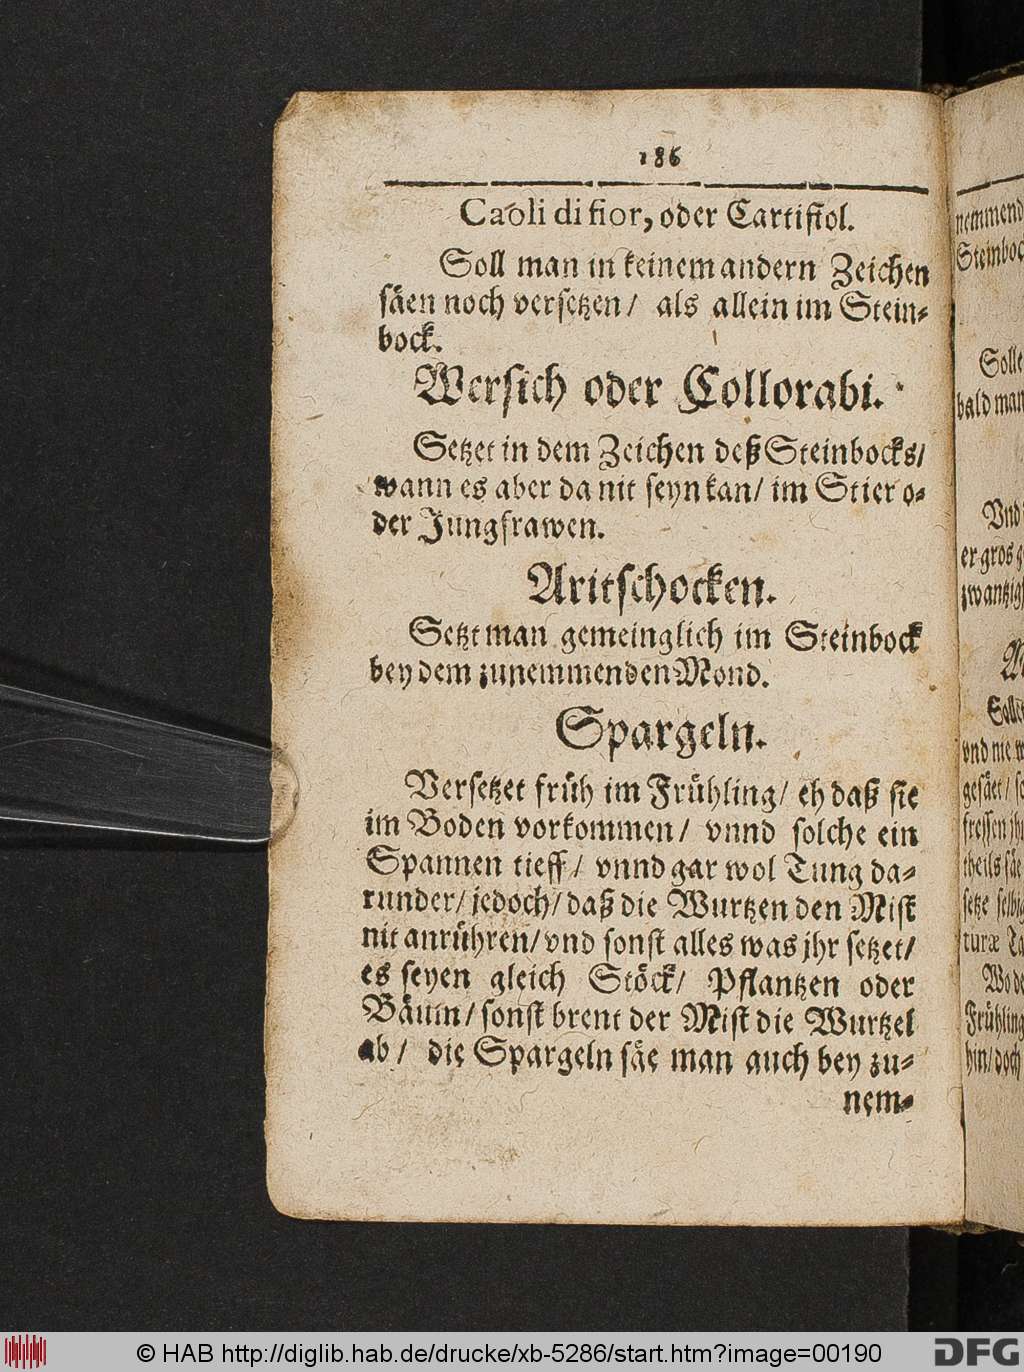 186
Caoli di fior, oder Cartifiol.
Soll man in keinem andern Zeichen
säen noch versetzen/ als allein im Stein-
bock.
Wersich oder Collorabi.
Setzet in dem Zeichen deß Steinbocks/
wann es aber da nit seyn kan/ im Stier o-
der Jungfrawen.
Aritschocken.
Setzt man gemeinglich im Steinbock
bey dem zunemmenden Mond.
Spargeln.
Versetzet früh im Frühling/ eh daß sie
im Boden vorkommen/ vnnd solche ein
Spannen tieff/ vnnd gar wol Tung da-
runder/ jedoch/ daß die Wurtzen den Mist
nit anrühren/ vnd sonst alles was jhr setzet/
es seyen gleich Stöck/ Pflantzen oder
Bäum/ sonst brent der Mist die Wurtzel
ab/ die Spargeln säe man auch bey zu-
nem-
nemmend
Steinboc
Solle
bald man
Vnd
er gros
zwantzig
vnd nie
gesäet/
fressen
theils säe
setze selbig
turæ
Wo de
Frühling
hin/ doch
© HAB http://diglib.hab.de/drucke/xb-5286/start.htm?image=00190
DFG